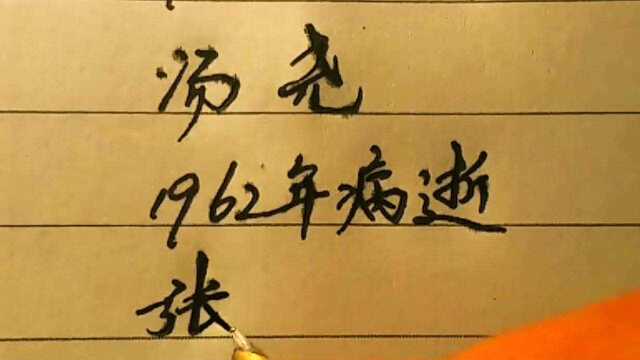 汤尧
1962年病逝
张